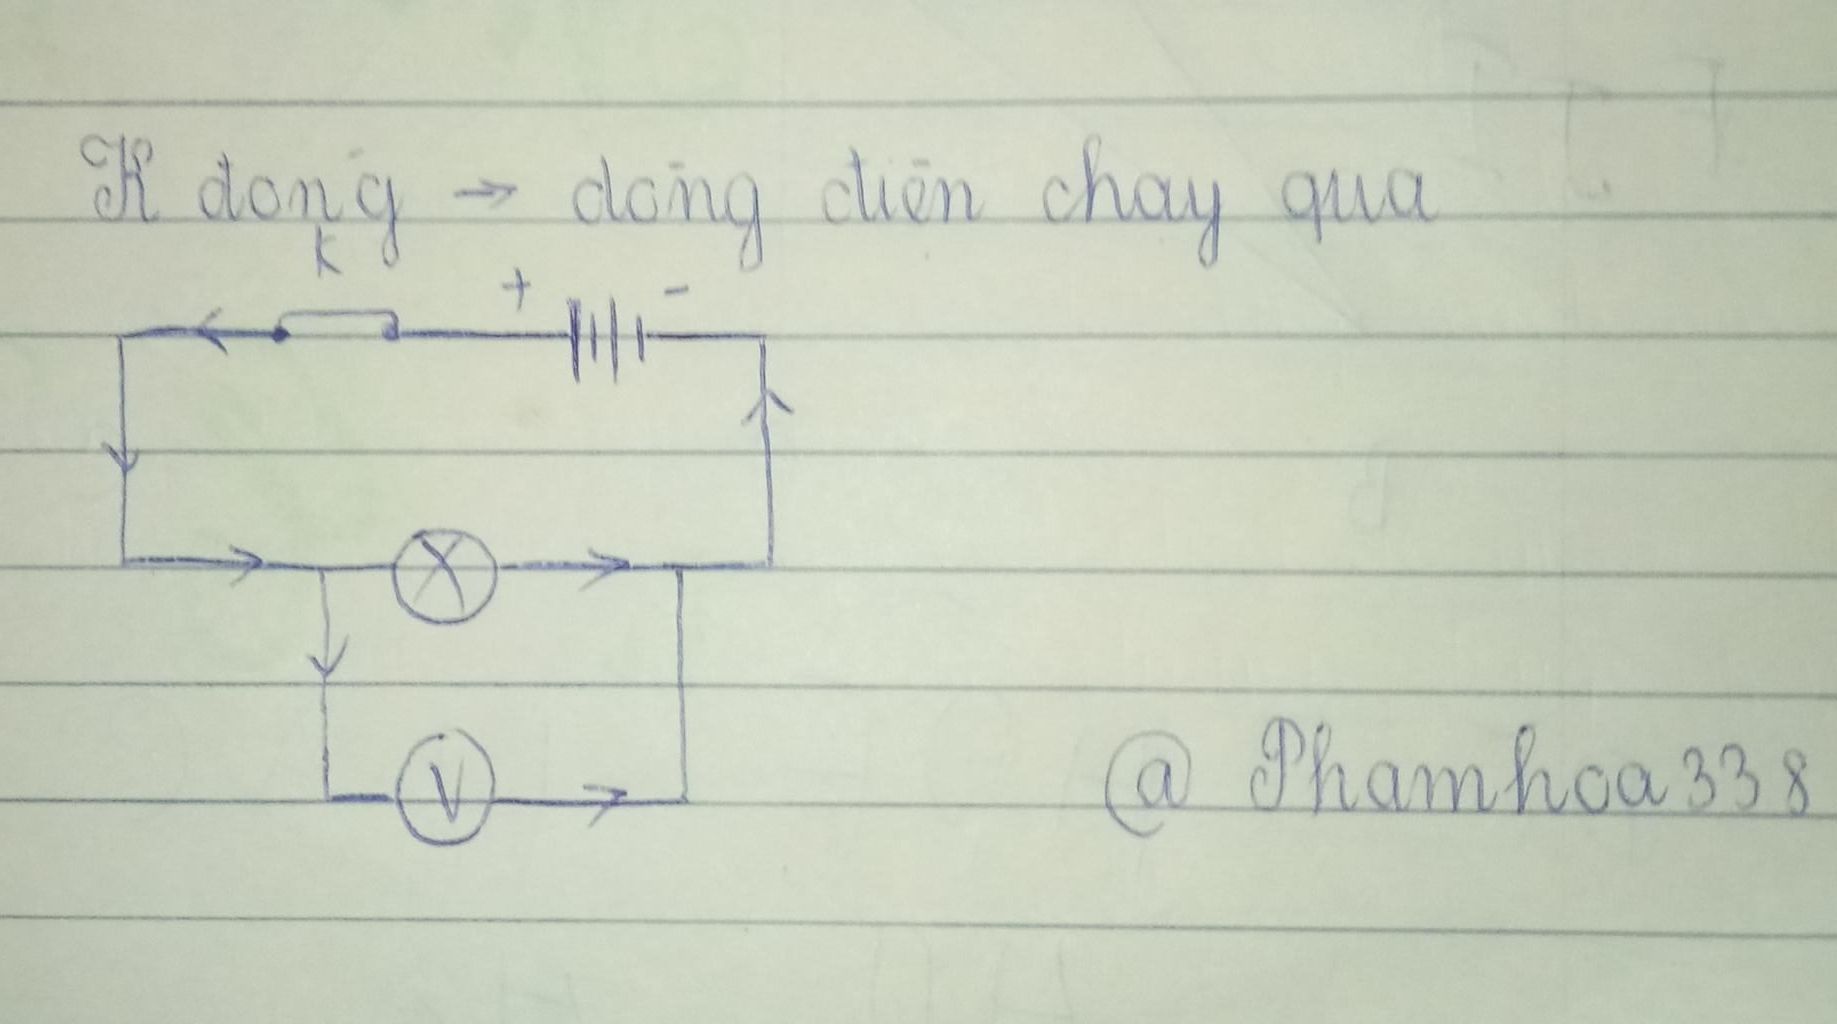 K đóng → dòng điện chạy qua
K
+ -
X
V
@ Phamhoa338